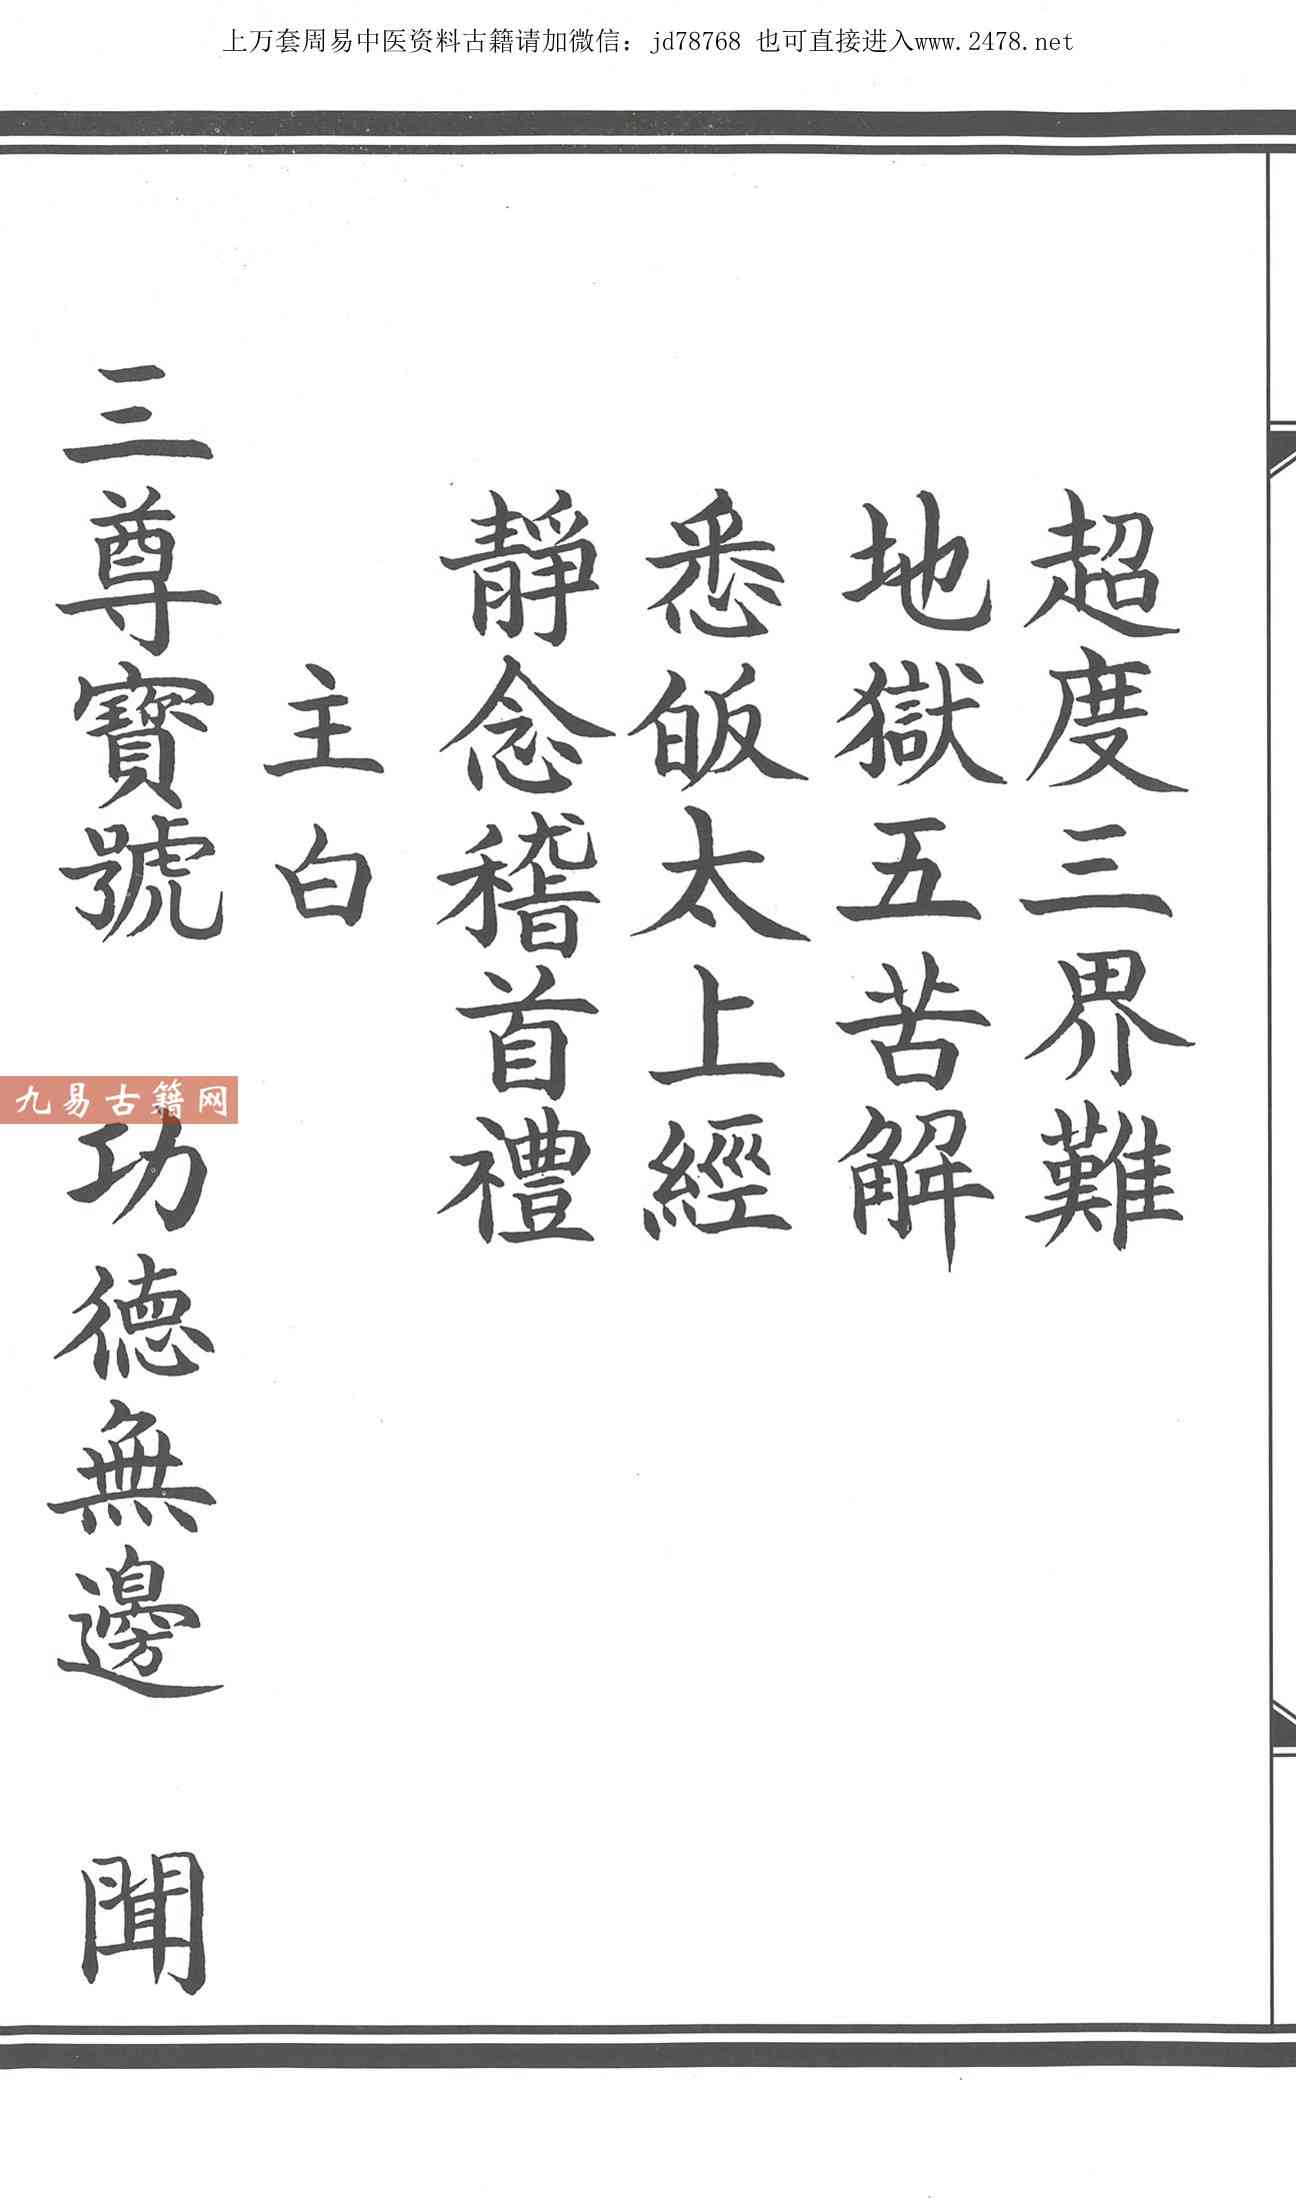 上万套周易中医资料古籍请加微信：jd78768 也可直接进入www.2478.net
超度三界難
地獄五苦解
悉皈太上經
靜念稽首禮
主白
三尊寶號 功德無邊 聞
九易古籍网